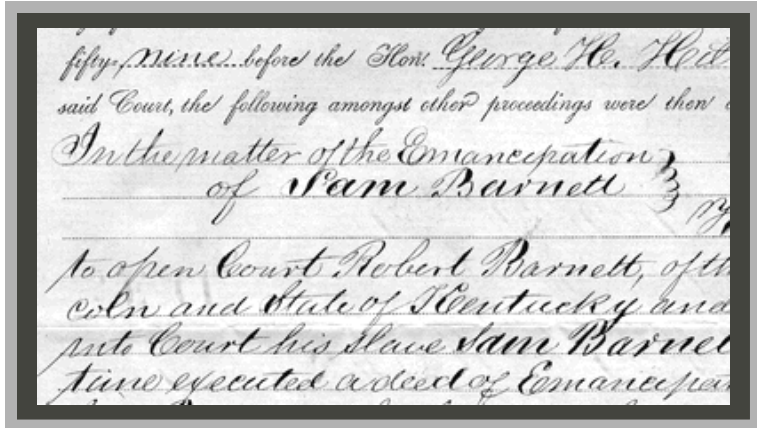 fifty-nine before the Hon. George H. 
said Court, the following amongst other proceedings were then
In the matter of the Emancipation
of Sam Barnett
to open Court Robert Barnett, of th
coln and State of Kentucky and
into Court his slave Sam Barnet
time executed a deed of Emancipa